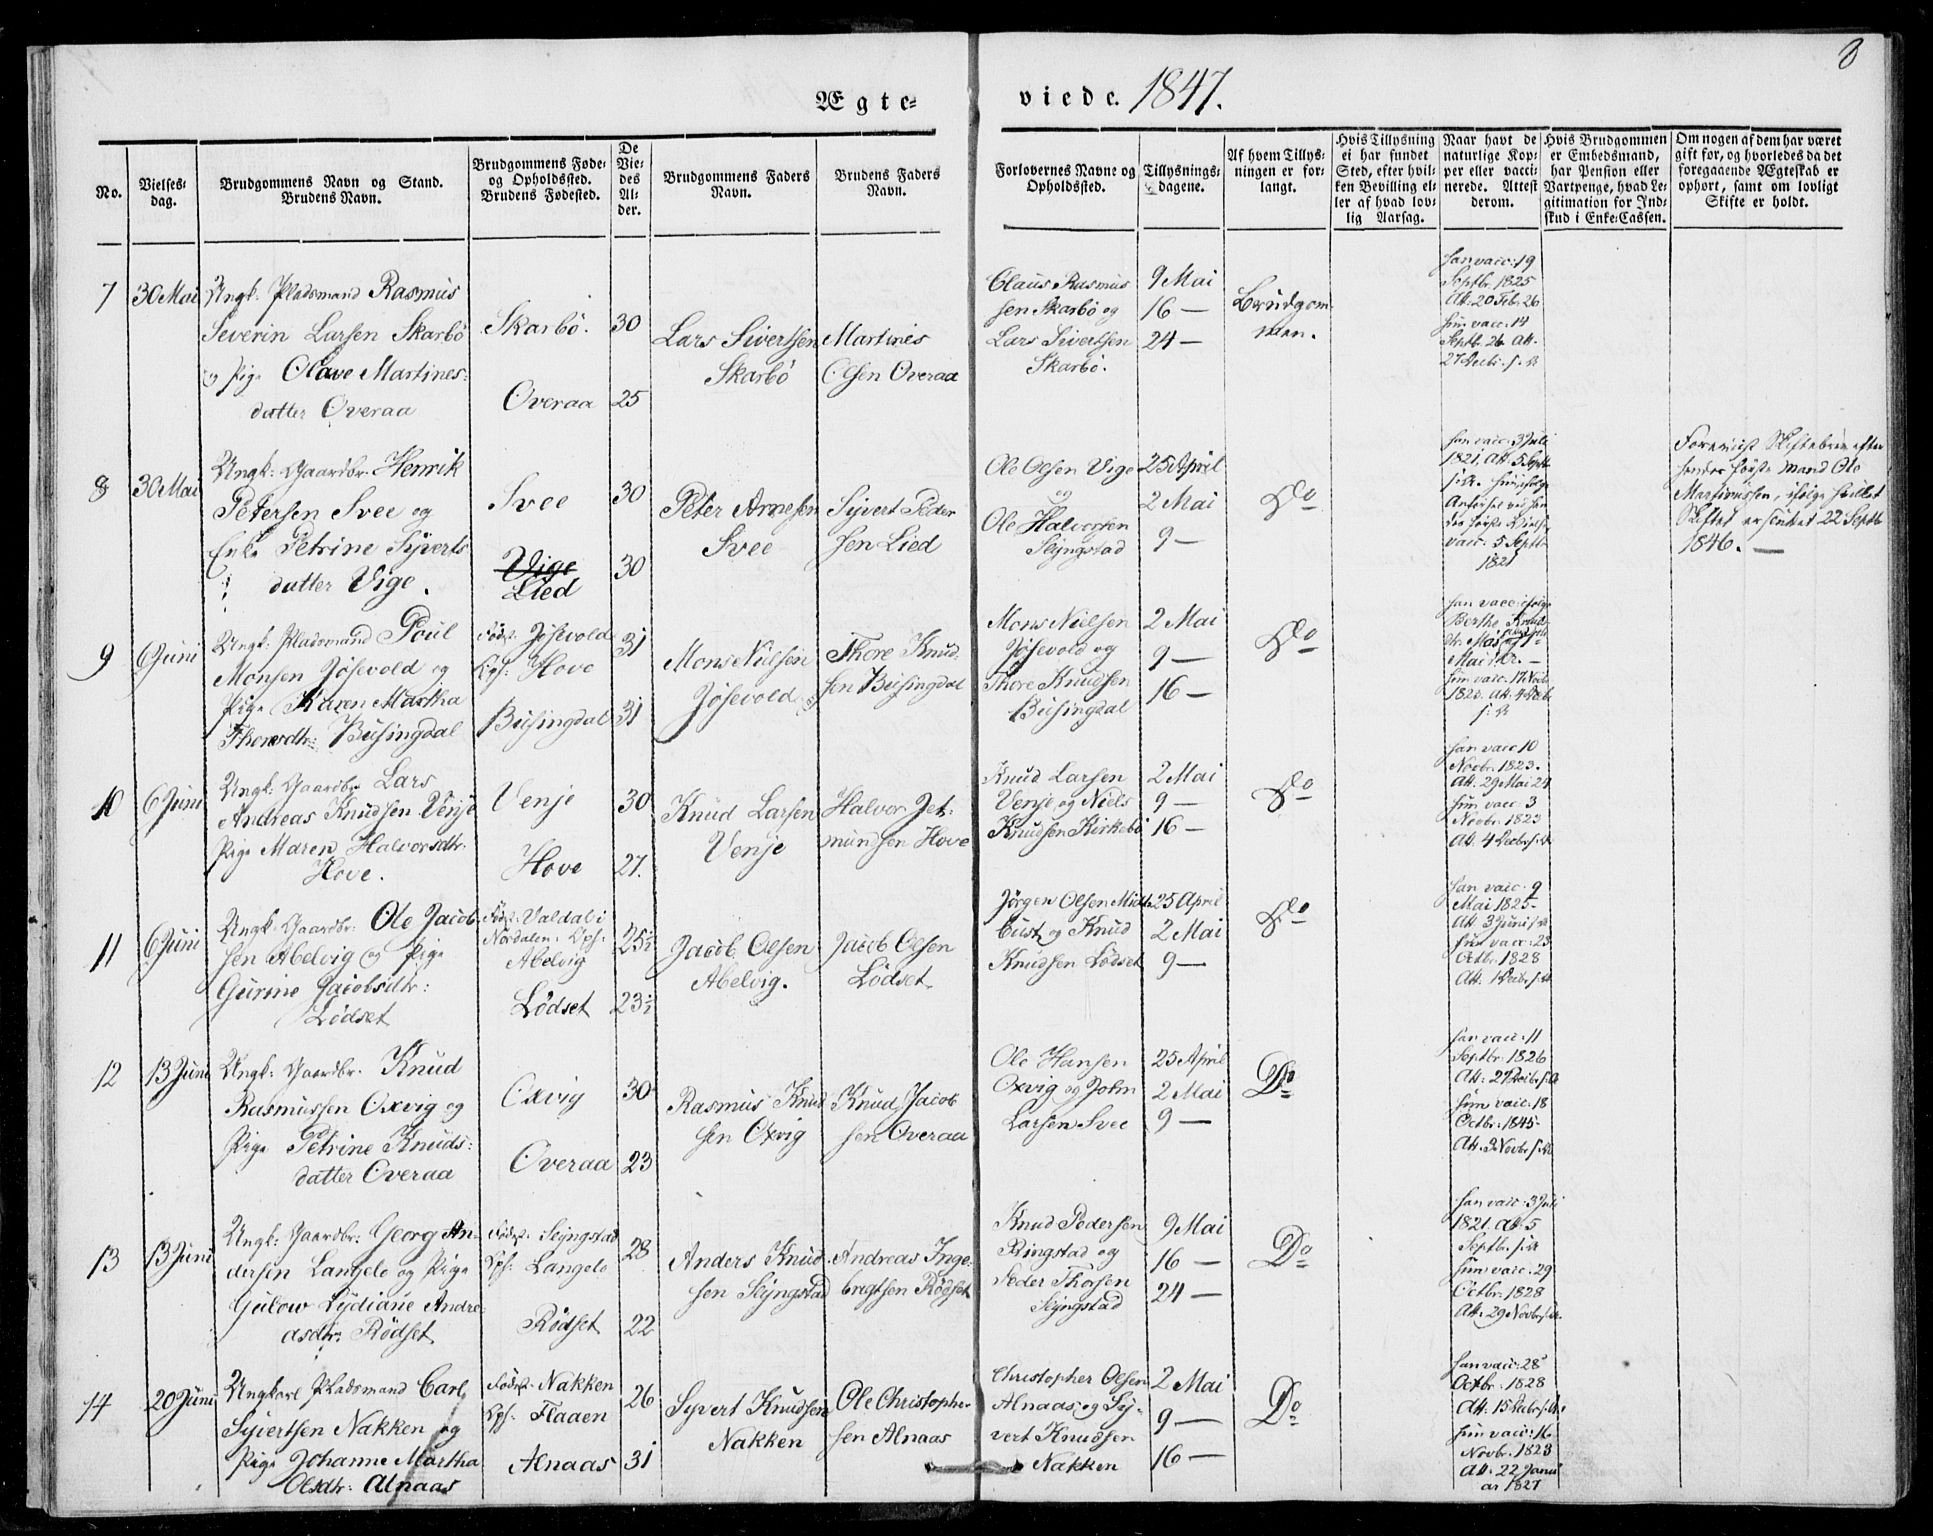 8
Ægte-viede. 1847.
No.
Vielses-
dag.
Brudgommens Navn og Stand.
Brudens Navn.
Brudgommens Føde-
og Opholdssted.
Brudens Fødested.
De
Vie-
des
Al-
der.
Brudgommens Faders
Navn.
Brudens Faders
Navn.
Forlovernes Navne og
Opholdssted.
Tillysnings-
dagene.
Af hvem Tillys-
ningen er for-
langt.
Hvis Tillysning
ei har fundet
Sted, efter hvil-
ken Bevilling el-
ler af hvad lov-
lig Aarsag.
Naar havt de
naturlige Kop-
per eller vacci-
nerede. Attest
derom.
Hvis Brudgommen
er Embedsmand,
har Pension eller
Vartpenge, hvad Le-
gitimation for Ind-
skud i Enke-Cassen.
Om nogen af dem har været
gift før, og hvorledes da det
foregaaende Ægteskab er
ophørt, samt om lovligt
Skifte er holdt.
7
30 Mai
Ungk: Pladsmand Rasmus
Severin Larsen Skarbö
og Pige Olave Martines-
datter Overaa
Skarbö.
Overaa
30
25
Lars Sivertsen
Skarbö
Martines
Olsen Overaa
Claus Rasmus
sen Skarbö og
Lars Sivertsen
Skarbö.
9 Mai
16 —
24 —
Brudgom
men.
han vacc: 19
Septbr. 1825
Att: 20 Feb. 26
hun vacc: 14
Septb. 26 Att.
27 Decbr. s. A
8
30 Mai
Ungk: Gaardbr. Henrik
Petersen Svee og
Enke Petrine Syverts
datter Vige.
Svee
Vige
Lied
30
30
Peter Arnesen
Svee
Syvert Peder
sen Lied
Ole Olsen Vige
og
Ole Halvorsen
Seyngstad
25 April
2 Mai
9 —
Do
han vacc: 3 Juli
1821, Att. 5 Septb
s. A. hun ifølge
vacc: 5 Septb
1821
Foreviist Skiftebrev efter
hendes første Mand Ole
Martinussen, ifølge hvilket
Skiftet er sluttet 22 Septb
1846. —
9
6 Juni
Ungk: Pladsmand Poul
Monsen Jösevold og
Pige Karen Martha
Thoresdtr: Busingdal
Föds: Jösevold
Oph: Hove
Busingdal
31
31
Mons Nielsen
Jösevold
Thore Knud
sen Busingdal
Mons Nielsen
Jösevold og
Thore Knudsen
Busingdal
2 Mai
9 —
16 —
Do
han vacc: ifølge
Berthe Knud
hun vacc: 17 Novb
1823. Att. 4 Decb
s. A
10
6 Juni
Ungk: Gaardbr. Lars
Andreas Knudsen Venje
Pige Maren Halvorsdtr.
Hove.
Venje
Hove
30
27.
Knud Larsen
Venje
Halvor Jet-
mundsen Hove
Knud Larsen
Venje og Niels
Knudsen Kirkebö
2 Mai
9 —
16 —
Do
han vacc 10
Novbr. 1823.
Att. 29 Mai 24
hun vacc: 3
Novbr. 1823
Att. 4 Decbr. s. A
11
6 Juni
Ungk: Gaardbr: Ole Jacob
sen Abelvig og Pige
Gurine Jacobsdtr:
Lödset
Föds: Valdal i
Nordalen: Oph:
Abelvig
Lödset
25½
23½
Jacob Olsen
Abelvig.
Jacob Olsen
Lödset
Jörgen Olsen Midt
bust og Knud
Knudsen Lödset
25 April
2 Mai
9 —
Do
han vacc: 9
Mai 1825-
Att. 3 Juni s. A
hun vacc: 23
Octbr. 1828
Att. 1 Decbr. s. A
12
13 Juni
Ungk: Gaardbr. Knud
Rasmussen Oxvig og
Pige Petrine Knuds-
datter Overaa
Oxvig
Overaa
30
23
Rasmus Knud
sen Oxvig
Knud Jacob
sen Overaa
Ole Hansen
Oxvig og John
Larsen Svee
25 April
2 Mai
9 —
Do
han vacc: 11
Septbr. 1826
Att: 27 Decbr. s. A
hun vacc: 18
Octbr. 1845-
Att. 3 Novbr. s. A
13
13 Juni
Ungk: Gaardbr: Georg An-
dersen Langelo og Pige
Gulow Lydiane Andre
asdtr: Rödset
Föds: Seyngstad
Oph: Langelo
Rödset
28
22
Anders Knud
sen Seyngstad
Andreas Inge-
brigtsen Rödset
Knud Pedersen
Ringstad og
Peder Thorsen
Seyngstad
9 Mai
16 —
24 —
Do
han vacc: 3 Juli
1821. Att. 5
Septbr. s. A
hun vacc: 29
Octbr. 1828
Att. 29 Novbr. s. A.
14
20 Juni
Ungkarl Pladsmand Carl
Syvertsen Nakken og
Pige Johanne Martha
Olsdtr: Alnaas
Föds: Nakken
Oph: Flaaen
Alnaas
26
31
Syvert Knudsen
Nakken
Ole Christopher
sen Alnaas
Christopher Olsen
Alnaas og Sy-
vert Knudsen
Nakken
2 Mai
9 —
16 —
Do
han vacc: 28
Octbr. 1828
Att. 15 Decbr. s. A.
hun vacc: 16
Novbr. 1823
Att. 22 Janu
ar 1827